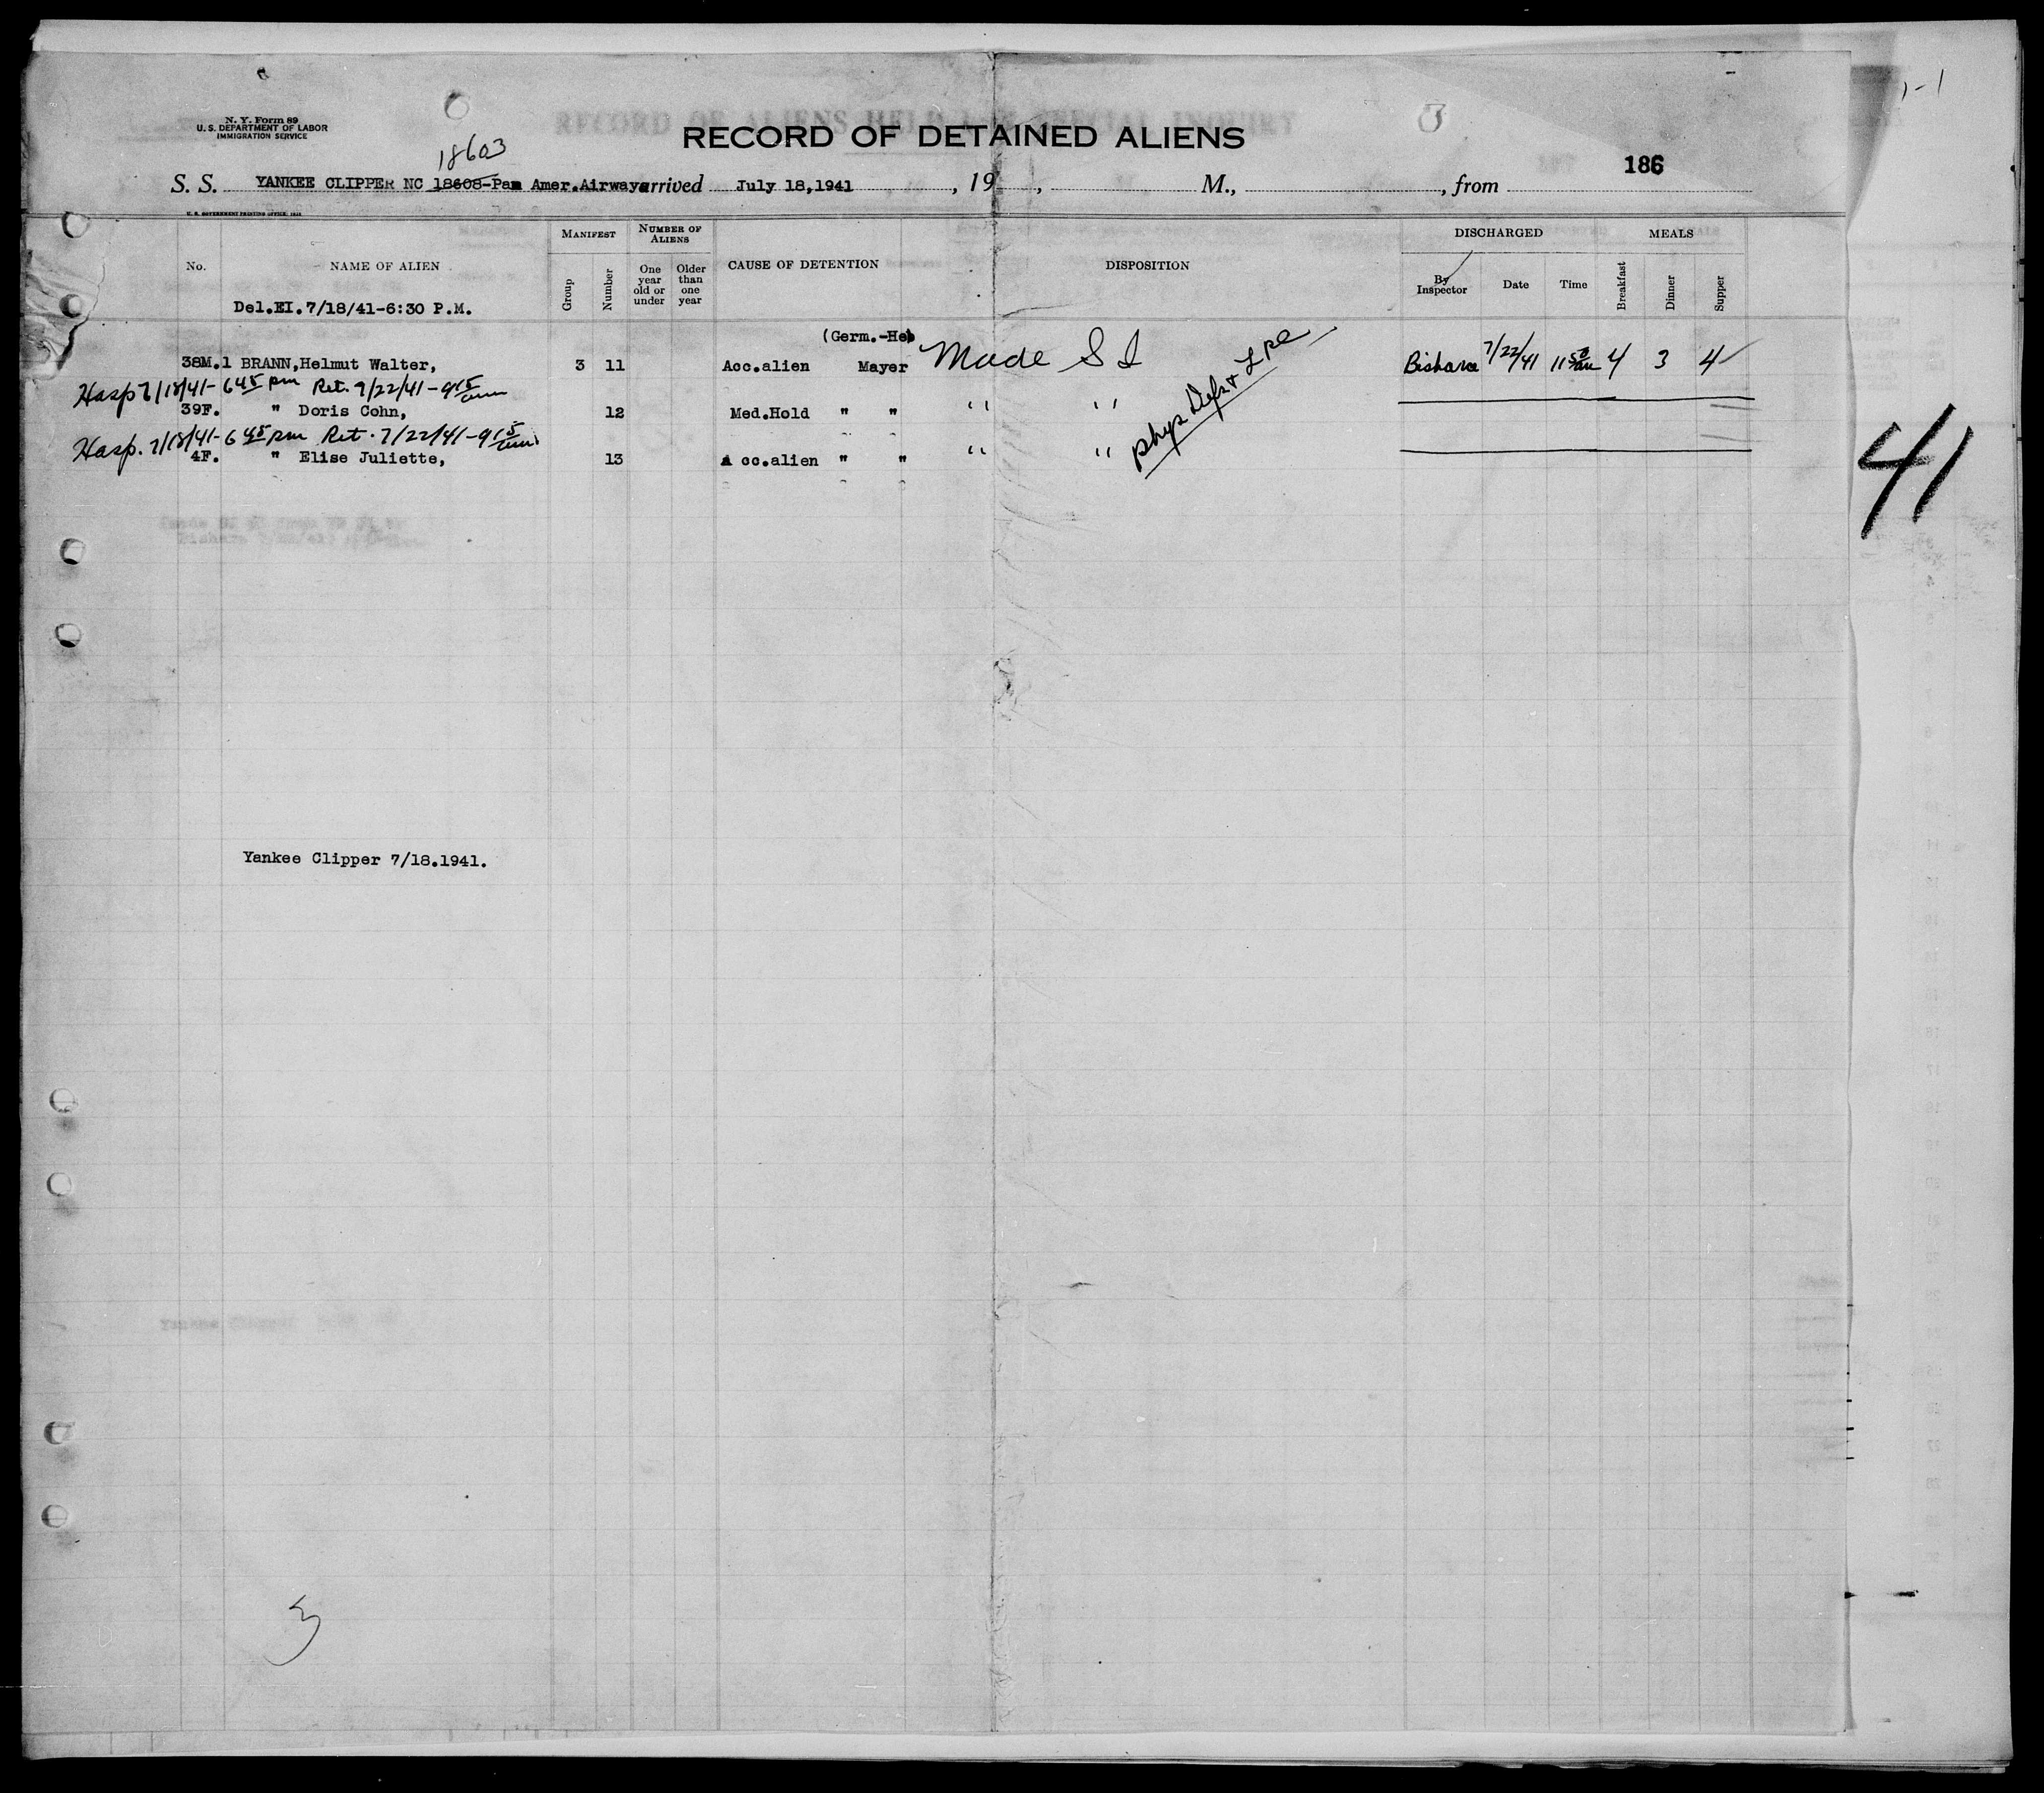 1-1
N. Y. Form 89
U. S. DEPARTMENT OF LABOR
IMMIGRATION SERVICE
RECORD OF ALIENS HELD FOR SPECIAL INQUIRY
RECORD OF DETAINED ALIENS
18603
186
S. S. YANKEE CLIPPER NC 18608-Pan Amer.Airways arrived July 18,1941 , 19 , M., , from
U. S. GOVERNMENT PRINTING OFFICE
MANIFEST NUMBER OF ALIENS DISCHARGED MEALS
No. NAME OF ALIEN Group Number One year old or under Older than one year CAUSE OF DETENTION DISPOSITION By Inspector Date Time Breakfast Dinner Supper
Del.EI.7/18/41-6:30 P.M.
(Germ.-Heb
38M.1 BRANN,Helmut Walter, 3 11 Acc.alien Mayer Made S I Phys Defs & LPC Bishara 7/22/41 11 50 am 4 3 4
Hosp 7/18/41- 6 45 pm Ret. 7/22/41 - 9 15 am
39F. " Doris Cohn, 12 Med.Hold " " " "
Hosp. 7/18/41- 6 45 pm Ret. 7/22/41 - 9 15 am
4F. " Elise Juliette, 13 A cc.alien " " " "
41
Yankee Clipper 7/18.1941.
3